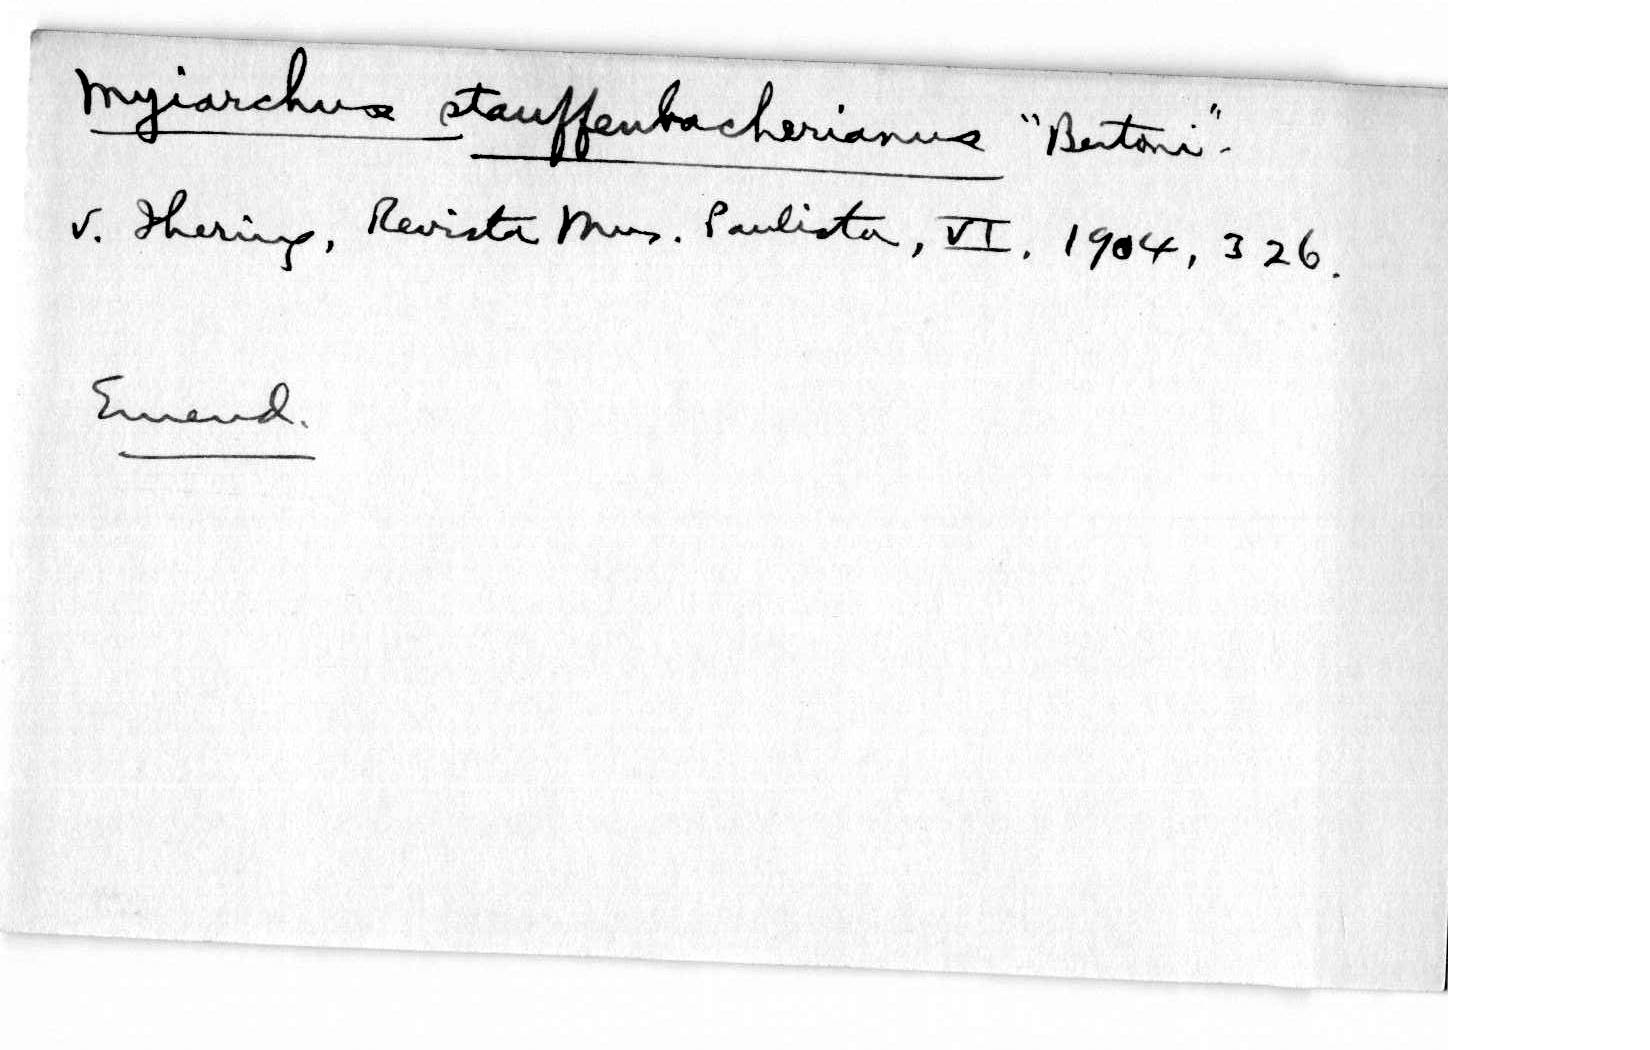 Myiarchus stauffenbacherianus "Bertoni".
v. Ihering, Revista Mus. Paulista, VI, 1904, 326.
Emend.